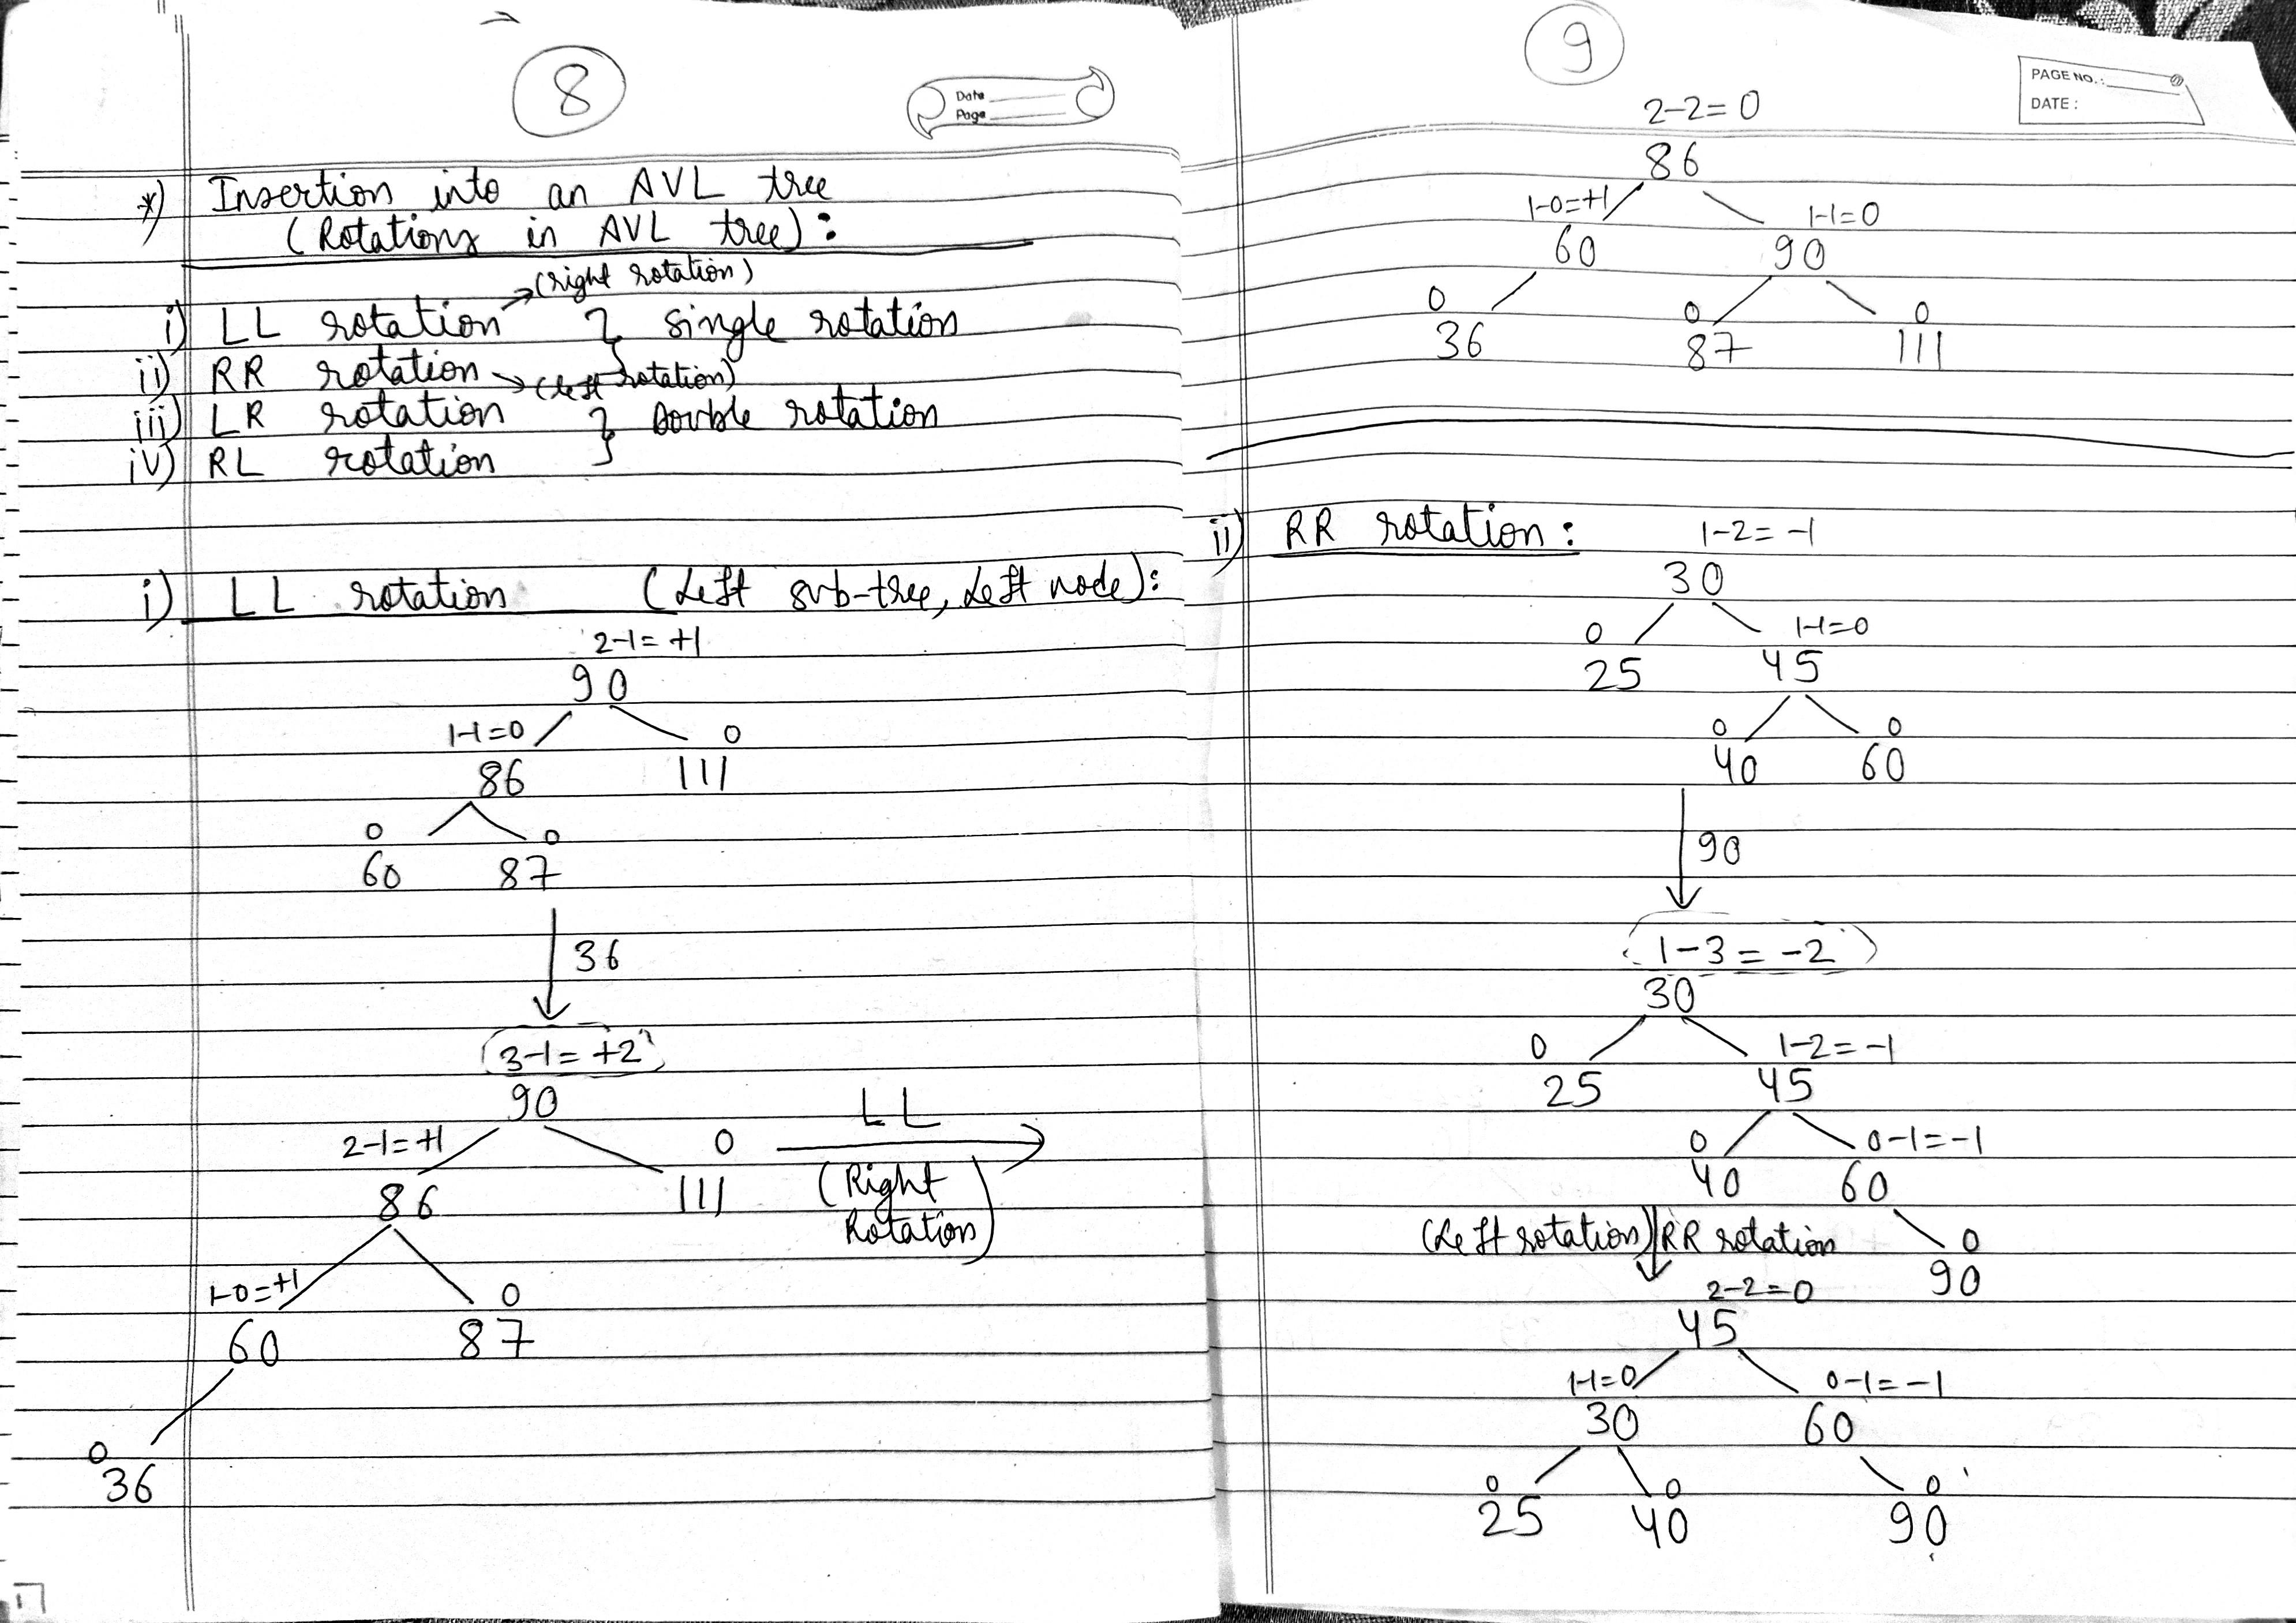 8
Date
Page
*) Insertion into an AVL tree
(Rotations in AVL tree):
→(right rotation)
i) LL rotation } single rotation
ii) RR rotation →(left rotation)
iii) LR rotation } Double rotation
iv) RL rotation
i) LL rotation (Left sub-tree, Left node):
2-1=+1
90
1-1=0 0
86 111
0 0
60 87
36
3-1=+2
90
2-1=+1 0
86 111
LL
(Right
Rotation)
1-0=+1 0
60 87
0
36
9
PAGE NO.:
DATE:
2-2=0
86
1-0=+1 1-1=0
60 90
0 0 0
36 87 111
ii) RR rotation:
1-2=-1
30
0 1-1=0
25 45
0 0
40 60
90
1-3=-2
30
0 1-2=-1
25 45
0 0-1=-1
40 60
(Left rotation) RR rotation 0
90
2-2=0
45
1-1=0 0-1=-1
30 60
0 0 0
25 40 90